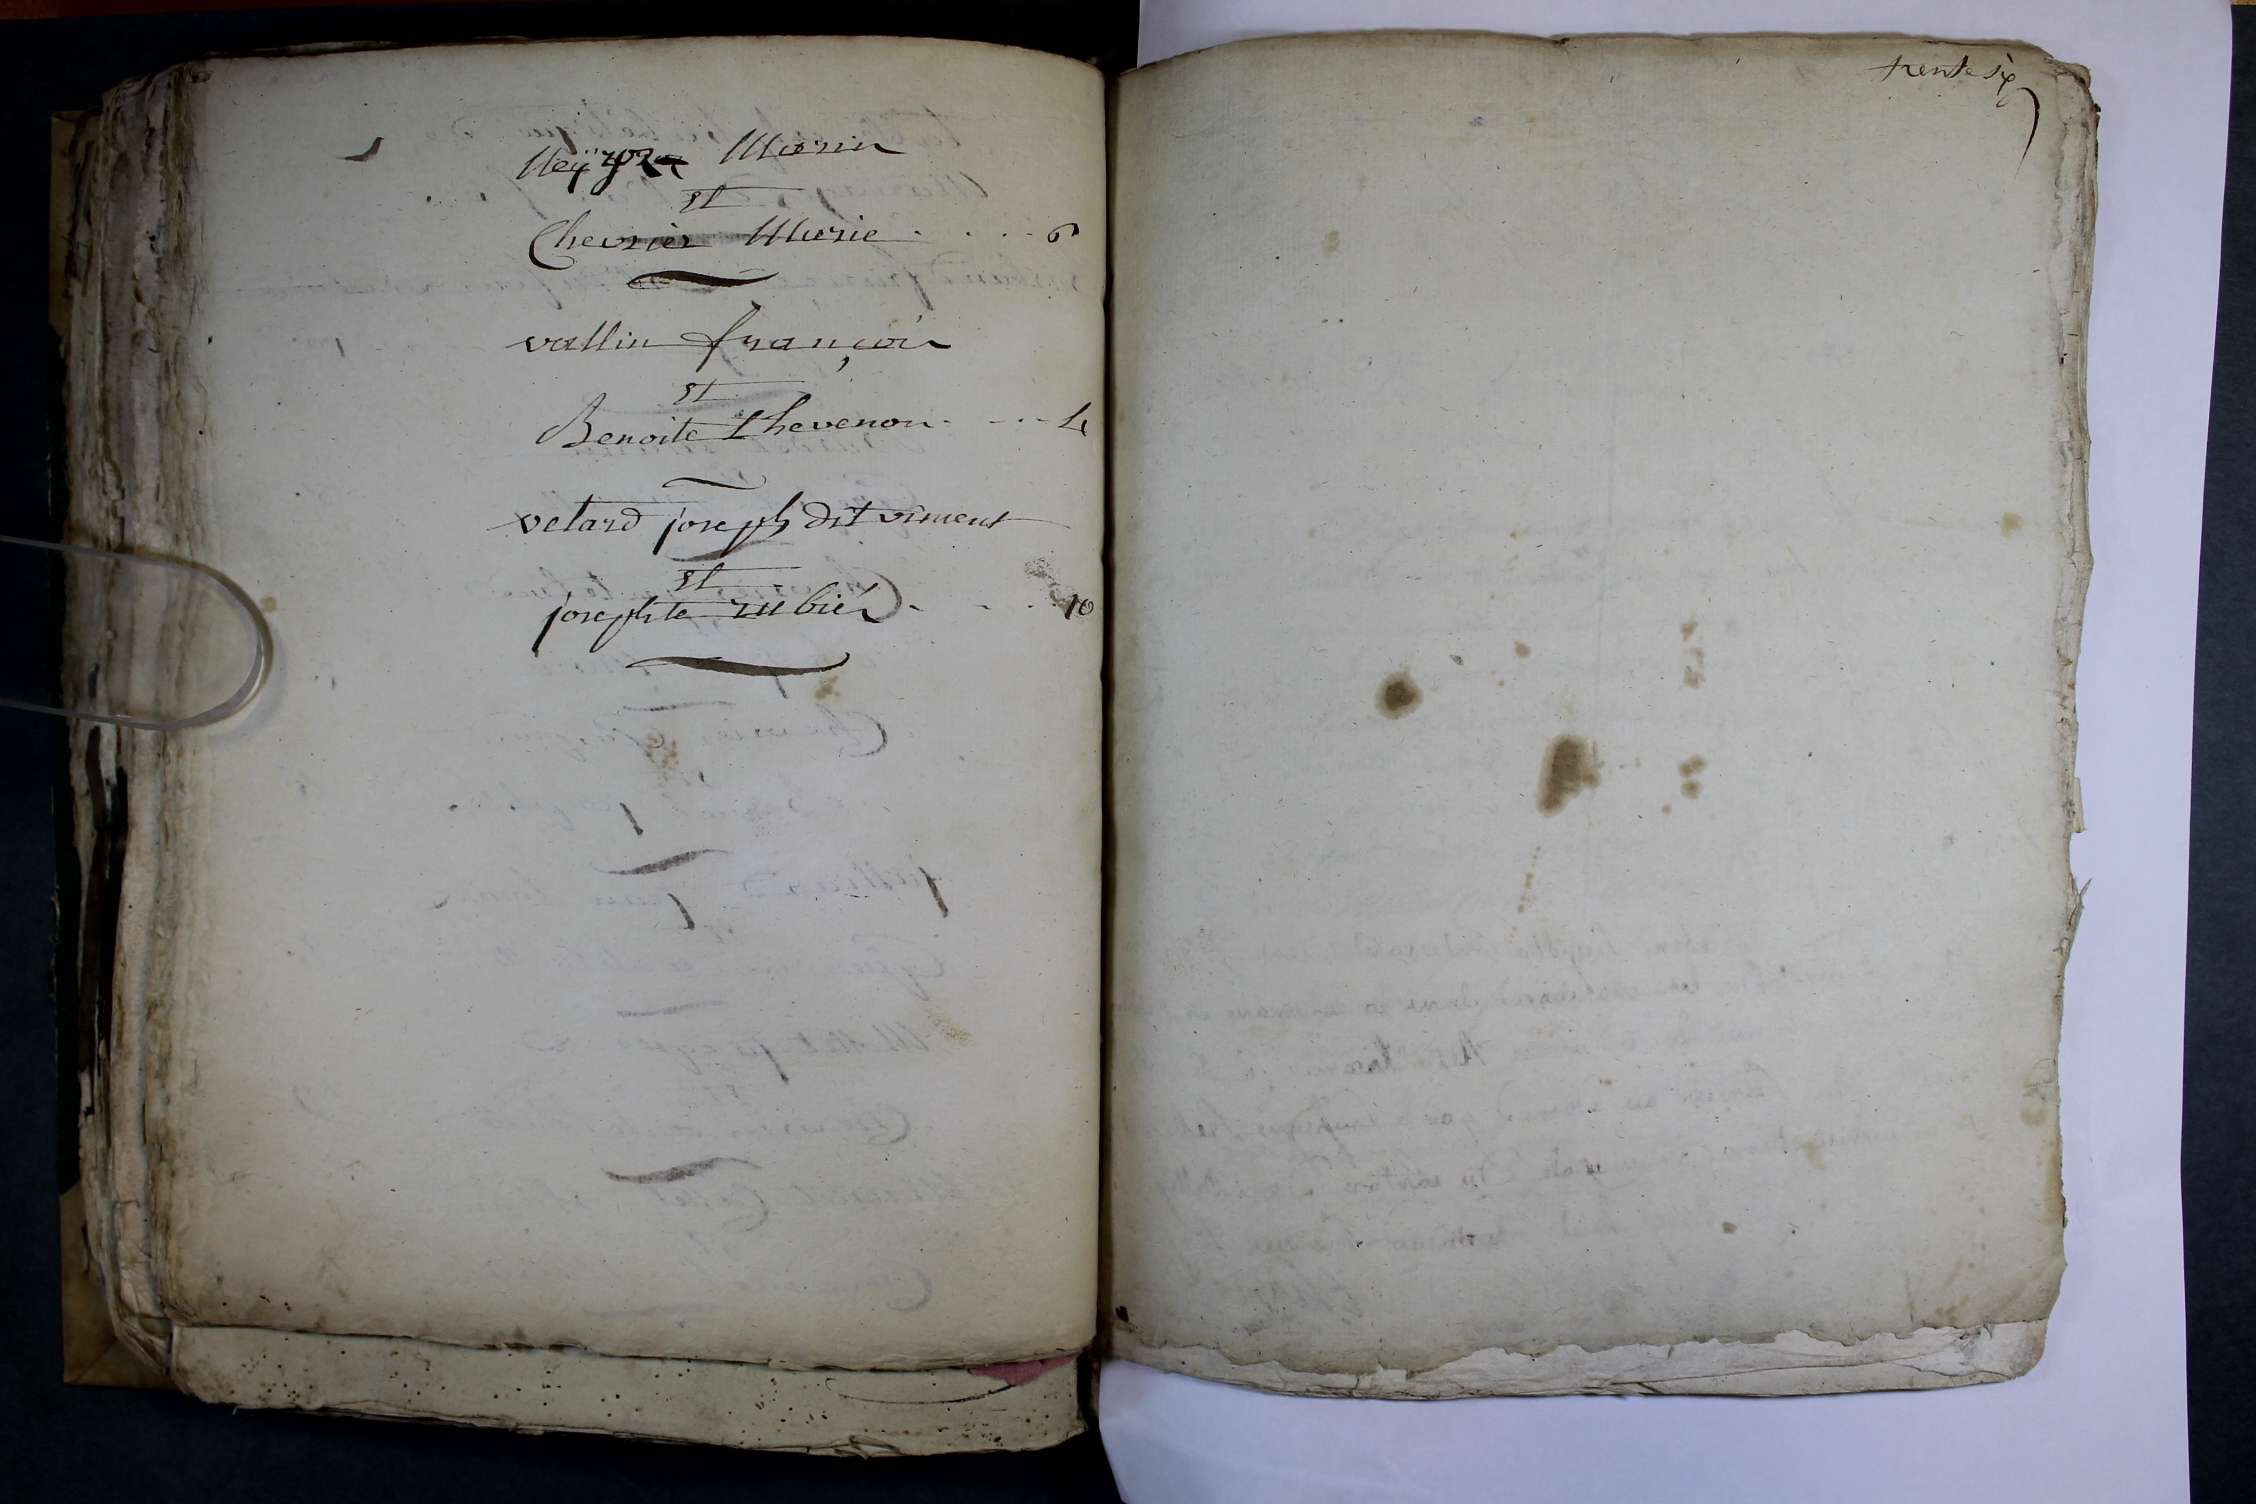 Marin
et
Chevrier Marie . . . . 6
vallin françois
et
Benoite thevenon . . . . 4
velard joseph dit viment
et
josephte rubier . . . . 10
trente six